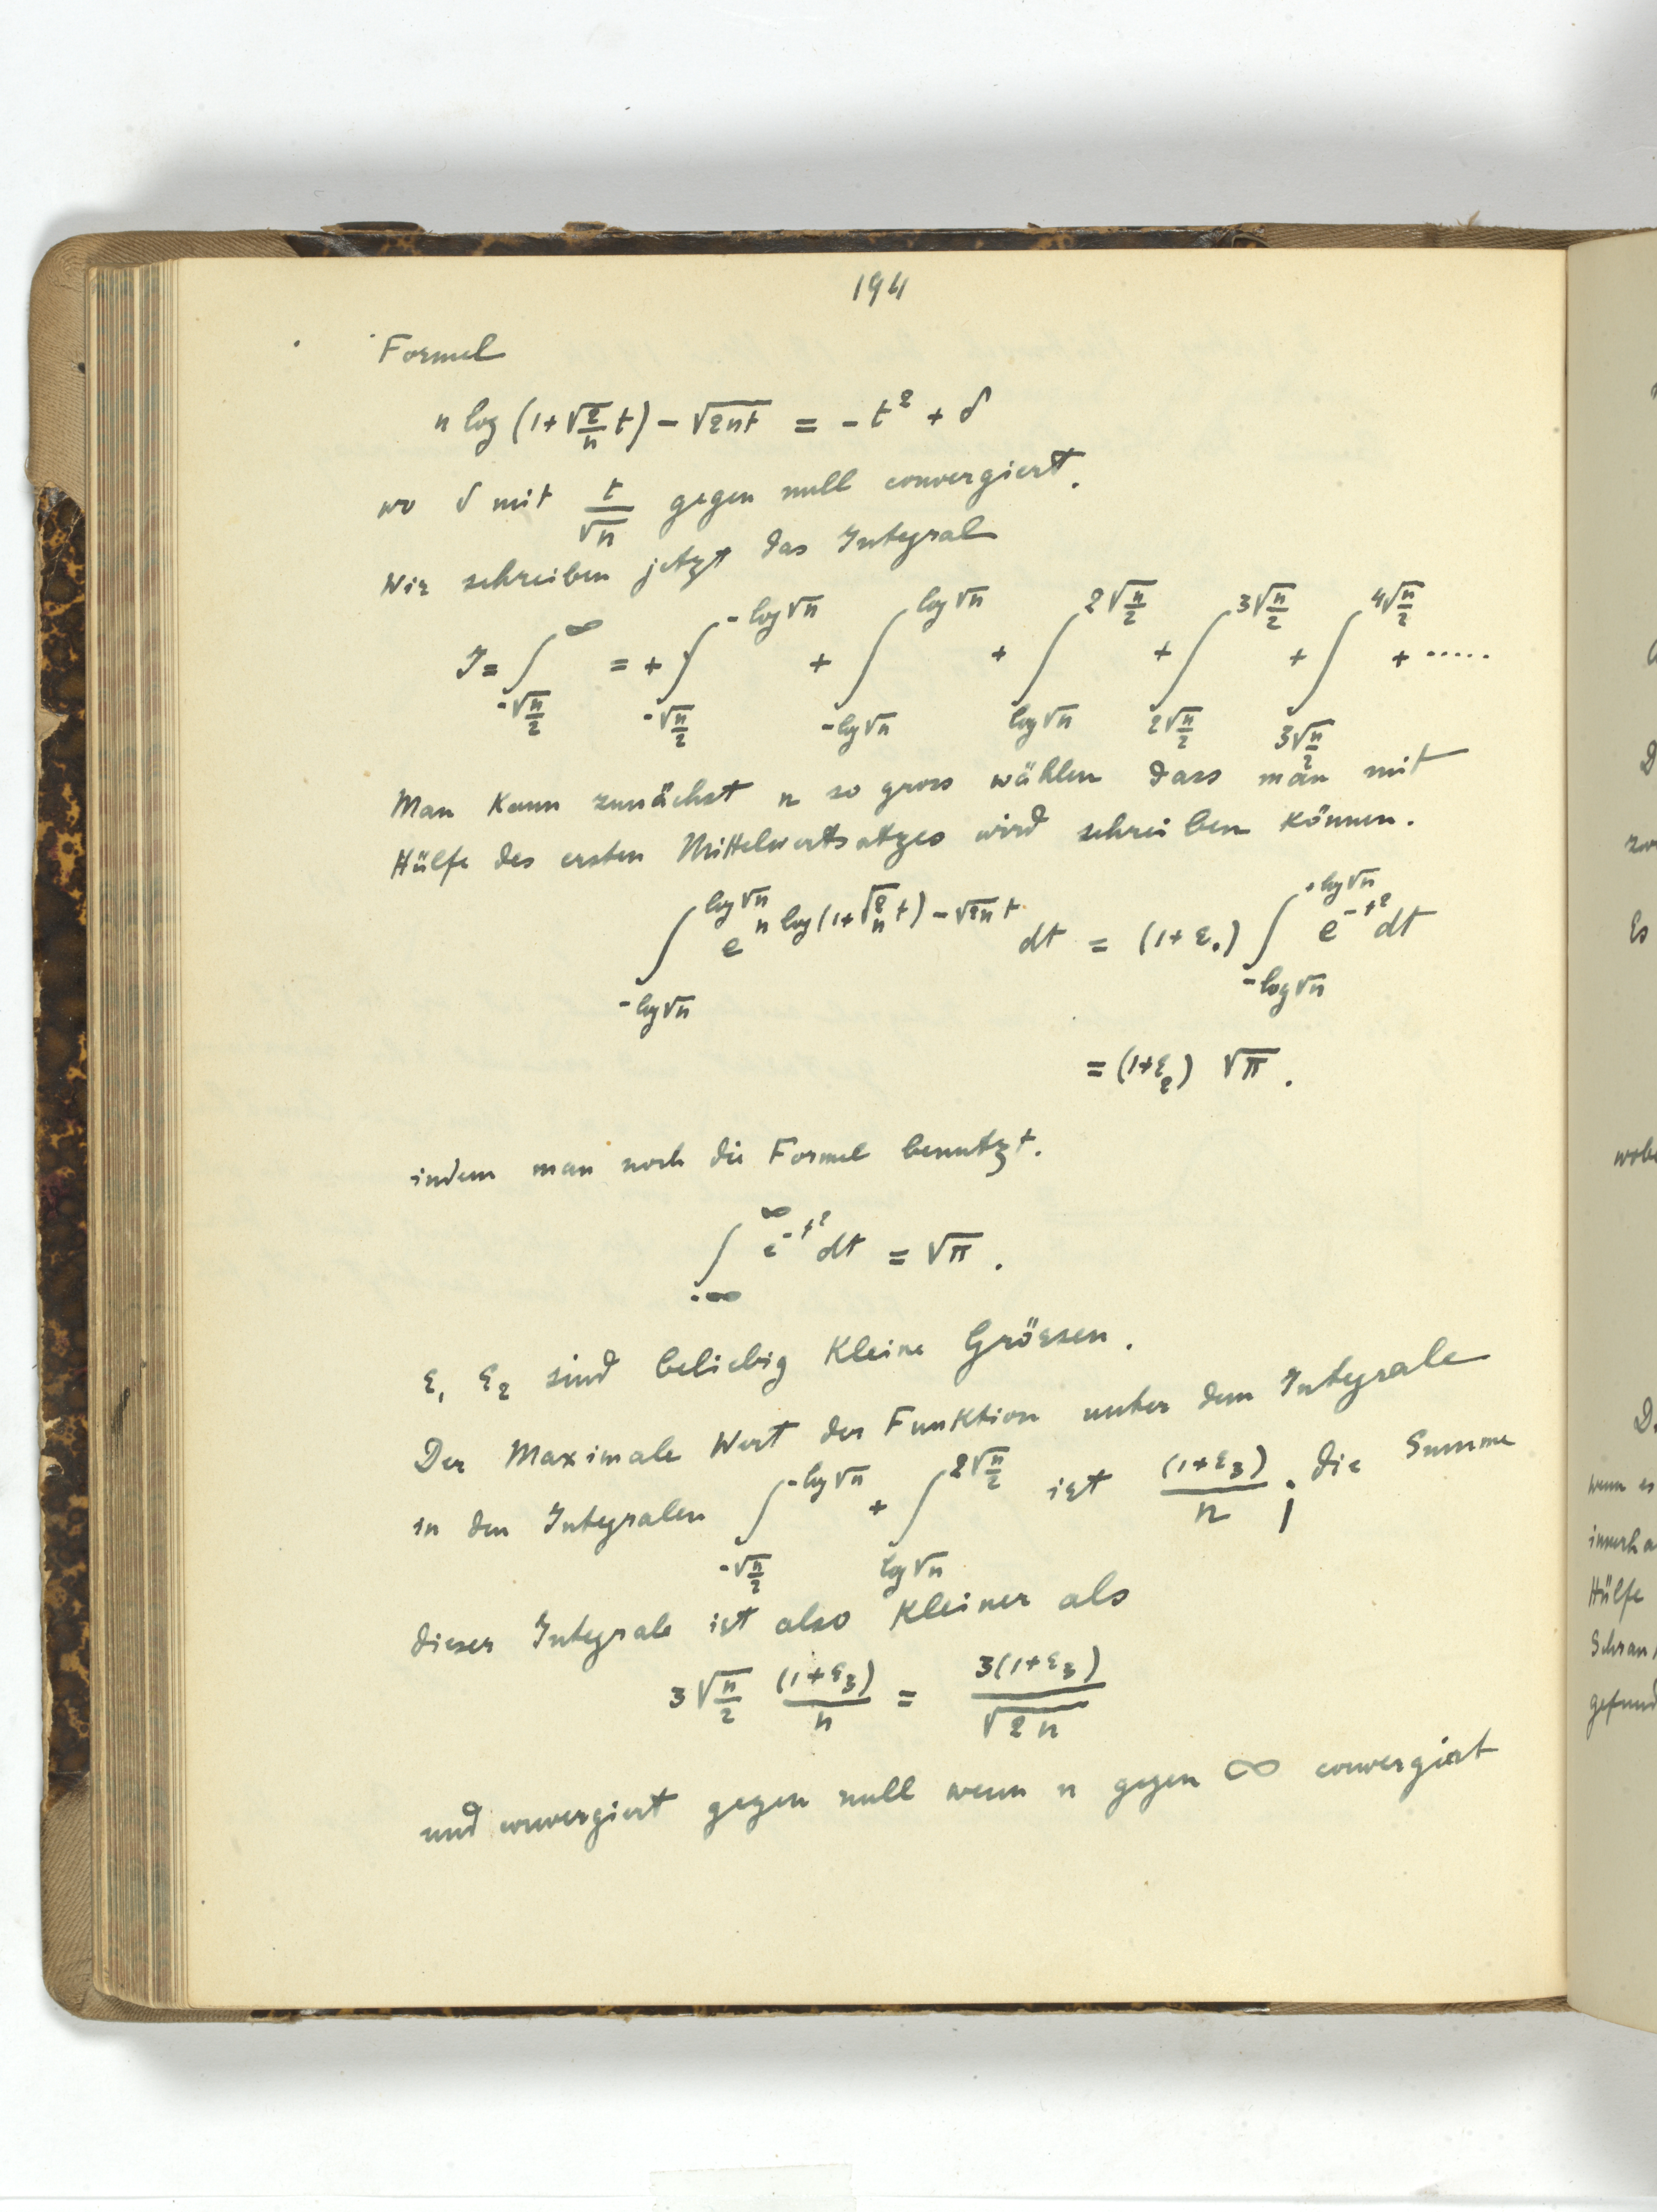 194
Formel
n log (1+√(2/n) t) - √(2nt) = - t² + δ
wo δ mit t/√n gegen null convergiert.
Wir schreiben jetzt das Integral
J = ∫_{-√(n/2)}^{∞} = + ∫_{-√(n/2)}^{-log√n} + ∫_{-log√n}^{log√n} + ∫_{log√n}^{2√(n/2)} + ∫_{2√(n/2)}^{3√(n/2)} + ∫_{3√(n/2)}^{4√(n/2)} + .....
Man kann zunächst n so gross wählen dass man mit
Hülfe des ersten Mittelwertsatzes wird schreiben können.
∫_{-log√n}^{log√n} e^{n log(1+√(2/n) t) - √(2n) t} dt = (1+ε₁) ∫_{-log√n}^{+log√n} e^{-t²} dt
= (1+ε₂) √π.
indem man noch die Formel benutzt.
∫_{-∞}^{∞} e^{-t²} dt = √π.
ε₁ ε₂ sind beliebig kleine Grössen.
Der Maximale Wert der Funktion unter dem Integrale
in den Integralen ∫_{-√(n/2)}^{-log√n} + ∫_{log√n}^{2√(n/2)} ist (1+ε₃)/n ; die Summe
dieser Integrale ist also kleiner als
3√(n/2) (1+ε₃)/n = 3(1+ε₃)/√(2n)
und convergiert gegen null wenn n gegen ∞ convergiert